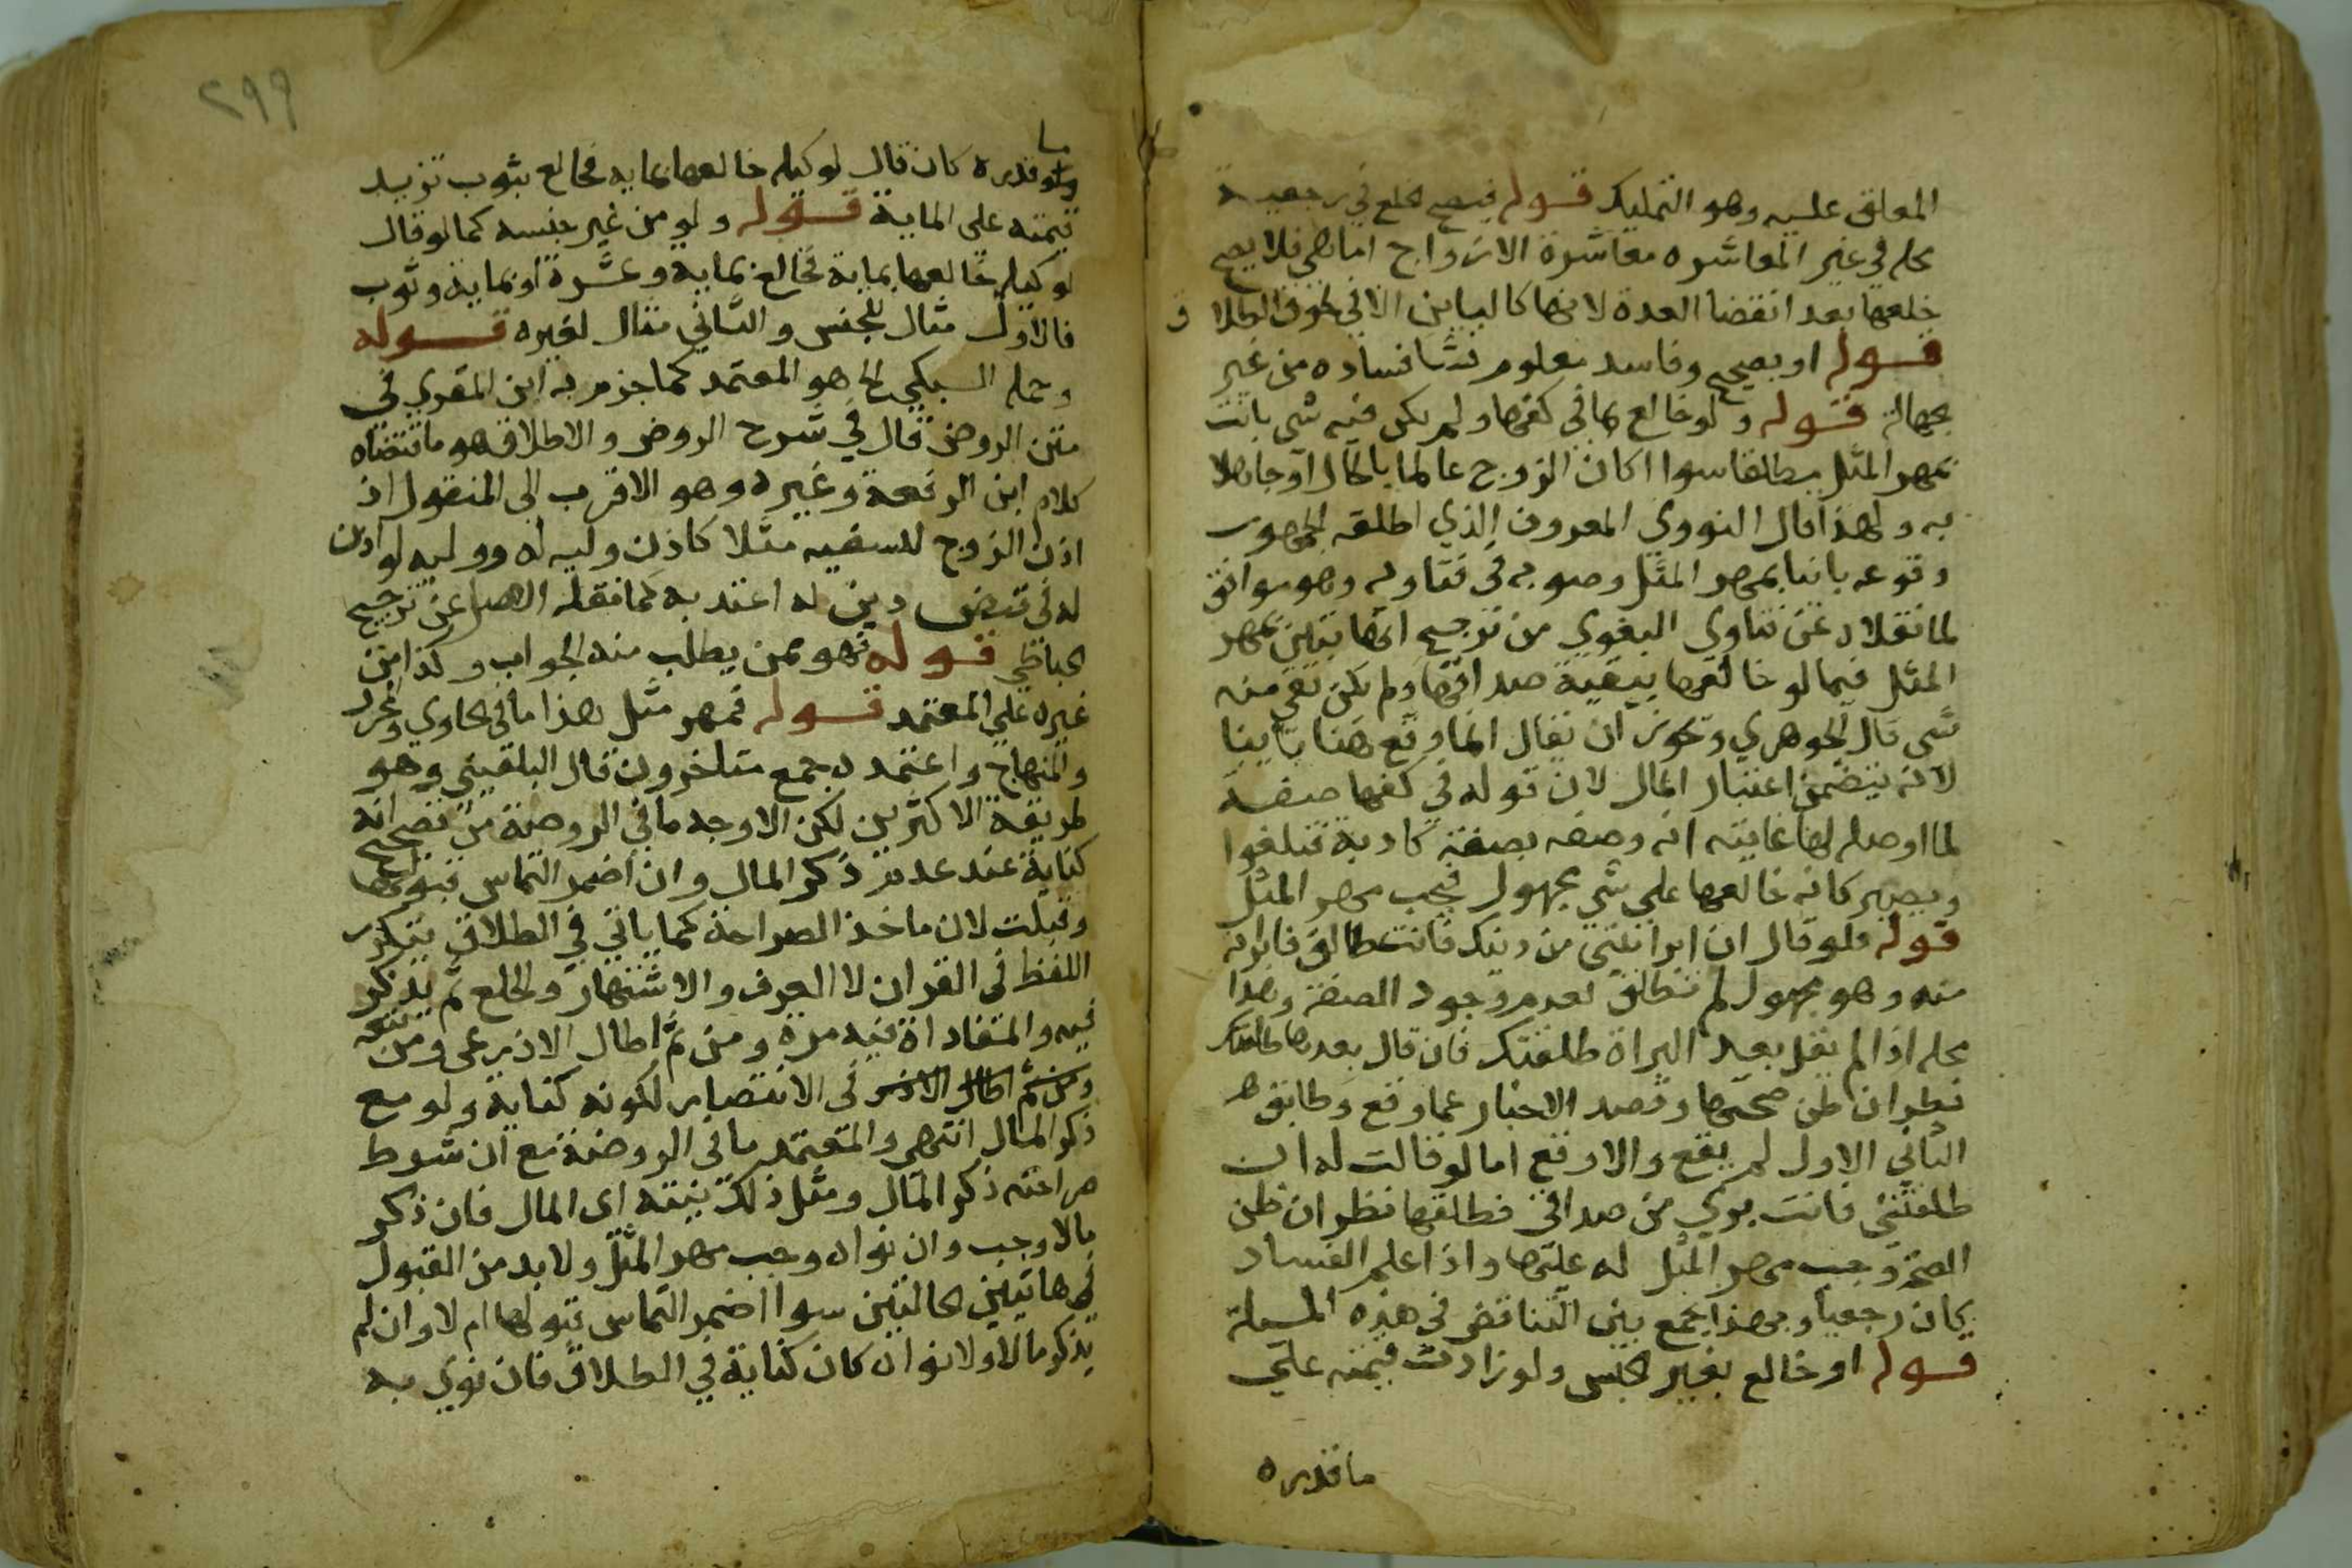 المعلق عليه وهو التمليك قوله فيصح خلع في رجعية
محله في غير المعاشره معاشرة الازواج اما هي فلا يصح
خلعها بعد انقضا العدة لانها كالباين الا في لحوق الطلاق
قوله او بصحيح وفاسد معلوم نشا فساده من غير
جهالة قوله ولو خالع بما في كفها ولم يكن فيه شي بانت
بمهر المثل مطلقا سوا اكان الزوج عالما بالحال او جاهلا
به ولهذا قال النووي المعروف الذي اطلقه الجمهور
وقوعه باينا بمهر المثل وصوبه في فتاويه وهو موافق
لما نقلاه عن فتاوي البغوي من ترجيح انها تبين بمهر
المثل فيما لو خالعها ببقية صداقها ولم يكن بقي منه
شي قال الجوهري ويجوز ان يقال انما وقع هنا باينا
لانه يتضمن اعتبار المال لان قوله في كفها صفة
لما اوصله لها غايته انه وصفه بصفة كاذبة فتلغوا
ويصير كانه خالعها على شي مجهول فيجب مهر المثل
قوله فلو قال ان ابراتني من دينك فانت طالق فابراته
منه وهو مجهول لم تطلق لعدم وجود الصفة وهذا
محله اذا لم يقل بعد البراة طلقتك فان قال بعدها طلقتك
نظر ان ظن صحتها وقصد الاخبار عما وقع وطابق
الثاني الاول لم يقع والا وقع اما لو قالت له ان
طلقتني فانت بري من صداقي فطلقها نظر ان ظن
الصحة وجب مهر المثل له عليها واذا علم الفساد
كان رجعيا وبهذا يجمع بين التناقض في هذه المسيلة
قوله او خالع بغير الجنس ولو زادت قيمته علي
ما قدره
٢٩٩
ما قدره كان قال لوكيله خالعها بمايه فخالع بثوب تزيد
قيمته على الماية قوله ولو من غير جنسه كما لو قال
لوكيله خالعها بماية فخالع بماية وعشرة او بماية وثوب
فالاول مثال للجنس والثاني مثال لغيره قوله
وحمله السبكي الخ هو المعتمد كما جزم به ابن المقري في
متن الروض قال في شرح الروض والاطلاق هو ما اقتضاه
كلام ابن الرفعة وغيره وهو الاقرب الى المنقول اذ
اذن الزوج للسفيه مثلا كاذن وليه له ووليه لو اذن
له في قبض دين له اعتد به كما نقله الاصل عن ترجيح
الحناطي قوله فهو ممن يطلب منه الجواب وكذا من
غيره على المعتمد قوله فمهر مثل هذا ما في الحاوي
والمنهاج واعتمده جمع متاخرون قال البلقيني وهو
طريقة الاكثرين لكن الاوجه ما في الروضة من تصحيح انه
كناية عند عدم ذكر المال وان اضمر التماس قبولها
وقبلت لان ماخذ الصراحة كما ياتي في الطلاق تكرر
اللفظ في القران لا العرف والاشتهار والخلع لم يذكر
فيه والمفاداة فيه مرة ومن ثم اطال الاذرعي ومن تبعه
ومن ثم اطال الاذر في الانتصار لكونه كناية ولو مع
ذكر المال انتهي والمعتمد ما في الروضة مع ان شرط
صراحته ذكر المال ومثل ذلك نيته اى المال فان ذكر
مالا وجب وان نواه وجب مهر المثل ولا بد من القبول
في هاتين الحالتين سوا اضمر التماس قبولها ام لا وان لم
يذكر مالا ولا نواه كان كناية في الطلاق فان نوى به